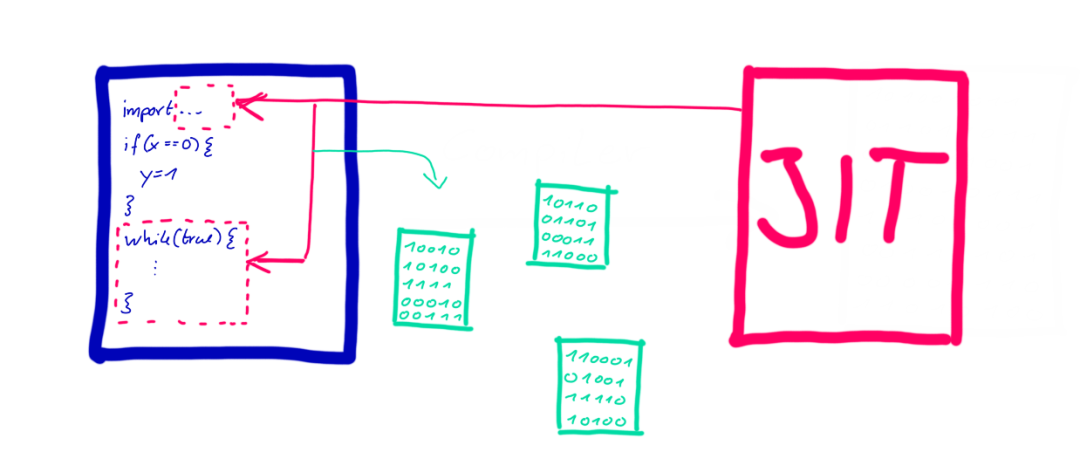 import ...
if(x ==0){
y=1
}
while(true){
⋮
}
JIT
10010
10100
1111
00010
00111
10110
01101
00011
11000
110001
01001
11110
10100